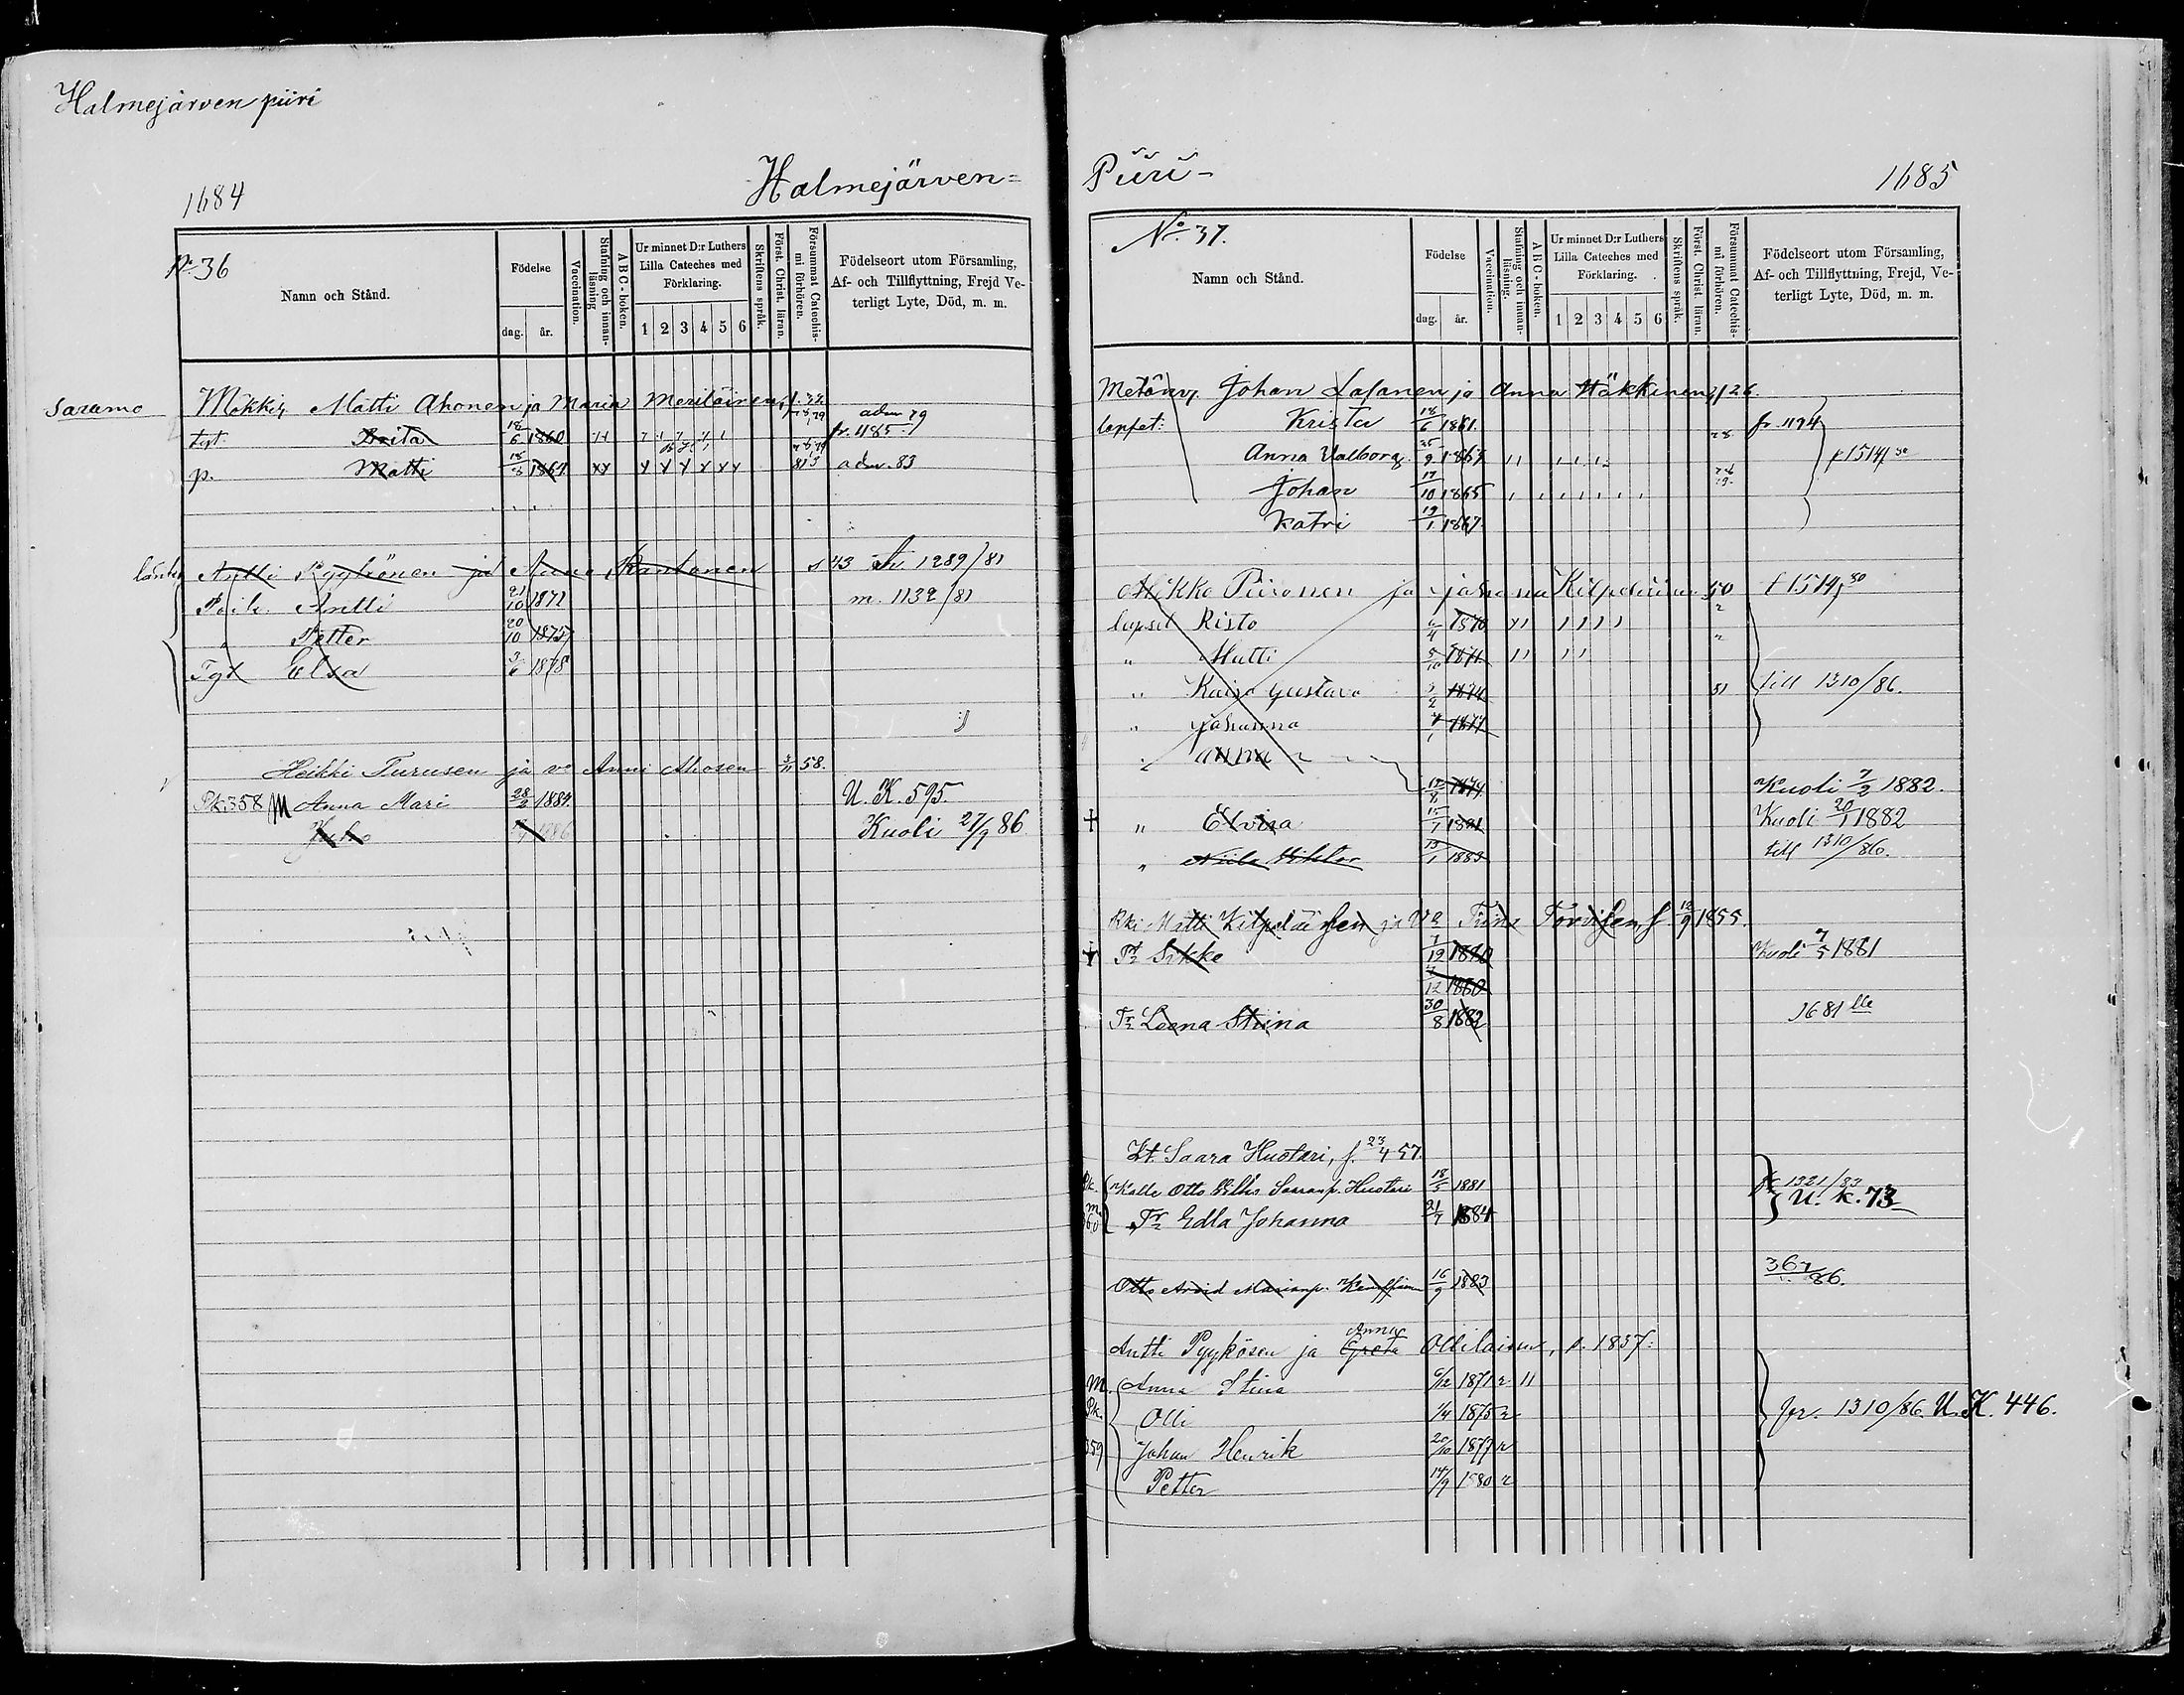 Halmejärven piiri
1684
Halmejärven=
No 36
Namn och Stånd.
Födelse
dag. år.
Vaccination.
Stafning och innanläsning
ABC-boken.
Ur minnet D:r Luthers Lilla Cateches med Förklaring.
1 2 3 4 5 6
Skriftens språk.
Först. Christ. läran.
Försummat Catechismi förhören.
Födelseort utom Församling, Af- och Tillflyttning, Frejd Veterligt Lyte, Död, m. m.
Saramo Mökki Matti Ahonen ja Maria Meriläinen
tyt. Brita 18/6 1860 adm 79 fr. 1185
p. Matti 18/3 1867 813 adm. 83
Antti Pyykönen ja Anna Kantonen s 43 1289/81
Poik. Antti 21/10 1872 m. 1132/81
" Petter 20/10 1875
Tyt Elsa 3/6 1878
Heikki Turusen ja vo Anni Ahosen 58.
Pk. 358 M Anna Mari 28/2 1884 U. K. 595.
Juho 1886 Kuoli 27/9 86
Piiri-
1685
No 37.
Namn och Stånd.
Födelse
dag. år.
Vaccination.
Stafning och innanläsning.
ABC-boken.
Ur minnet D:r Luthers Lilla Cateches med Förklaring.
1 2 3 4 5 6
Skriftens språk.
Först. Christ. läran.
Försummat Catechismi förhören.
Födelseort utom Församling, Af- och Tillflyttning, Frejd, Veterligt Lyte, Död, m. m.
Johan ja Anna Häkkinen 26.
lapset: Krista 18/6 1861 fr. 1194
Anna Valborg 25/9 1864
Johan 17/10 1865
Katri 19/1 1867
Piironen ja Johanna Kilpeläinen 50 t 1514/80
lapset Risto 1870
" Matti 5/10 1871
" Kaisa Gustava 3/2 1874 till 1310/86.
" Johanna 1877
" Anna 1879 Kuoli 7/2 1882.
" Elvira 15/1 1881 Kuoli 20/1 1882
" Niilo Viktor 13/1 1883 till 1310/86.
Matti Kilpeläisen ja Va Torvisen f. 12/9 1855.
Tr Sikke 7/12 1880 Kuoli 7/5 1881
7/12 1880
Tr Leena Stiina 30/8 1882 1681 lle
Lt. Saara Huotari, f. 23/4 57.
Pk. Kalle Otto Vilho Saaranp. Huotari 18/5 1881 fr 1321/83
m. 360 Tr Edla Johanna 21/7 1884 U. K. 73
Otto Arvid Marianp. 16/9 1883 367/86.
Antti Pyykösen ja Greta Anna Ollilaisen, s. 1837:
M. Anna Stina 6/12 1871 r 11
Pk. Olli 1/4 1875 r fr. 1310/86. U. K. 446.
359 Johan Henrik 20/10 1877 r
Petter 14/9 1880 r